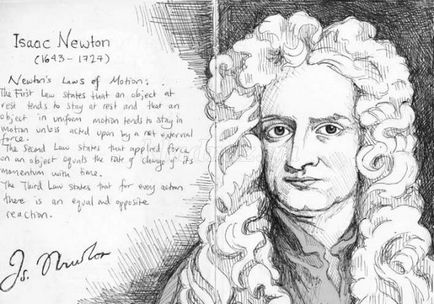 Isaac Newton
(1643 - 1727)
Newton's Laws of Motion:
The First Law states that an object at
rest tends to stay at rest and that an
object in uniform motion tends to stay in
motion unless acted upon by a net external
force.
The Second Law states that applied force
on an object equals the rate of change of its
momentum with time.
The Third Law states that for every action
there is an equal and opposite
reaction.
Is. Newton